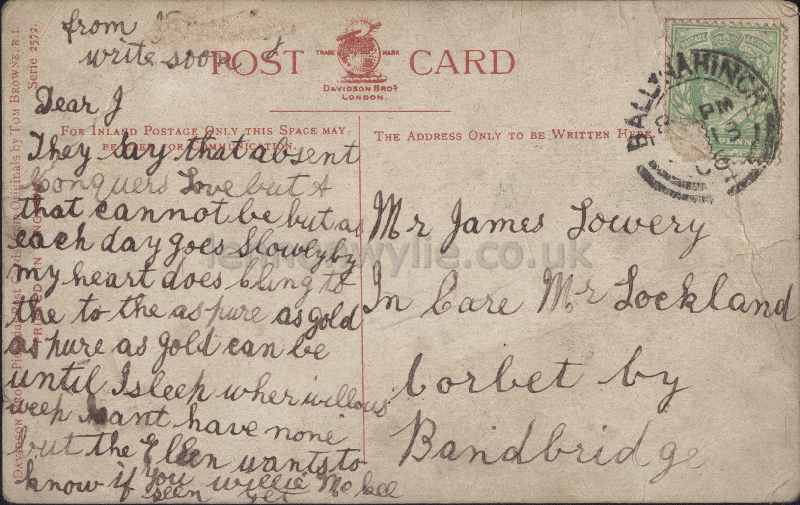 from
write soon
POST CARD
TRADE MARK
DAVIDSON BROS
LONDON.
BALLYNAHINCH
PM
Dear J
FOR INLAND POSTAGE ONLY THIS SPACE MAY
BE USED FOR COMMUNICATION.
THE ADDRESS ONLY TO BE WRITTEN HERE.
They say that absent
Conquers Love but A
that cannot be but as
each day goes Slowly by
my heart does Cling to
the to the as pure as gold
as pure as gold can be
until I sleep wher willows
weep I want have none
but the Ellen wants to
know if you willie Mc kee
seen yet
Mr James Lowery
In Care Mr Lockland
Corbet by
Bandbridge
DAVIDSON BROS' Pictorial Post Cards from Originals by TOM BROWNE, R.I.
Serie 2572.
lennonwylie.co.uk